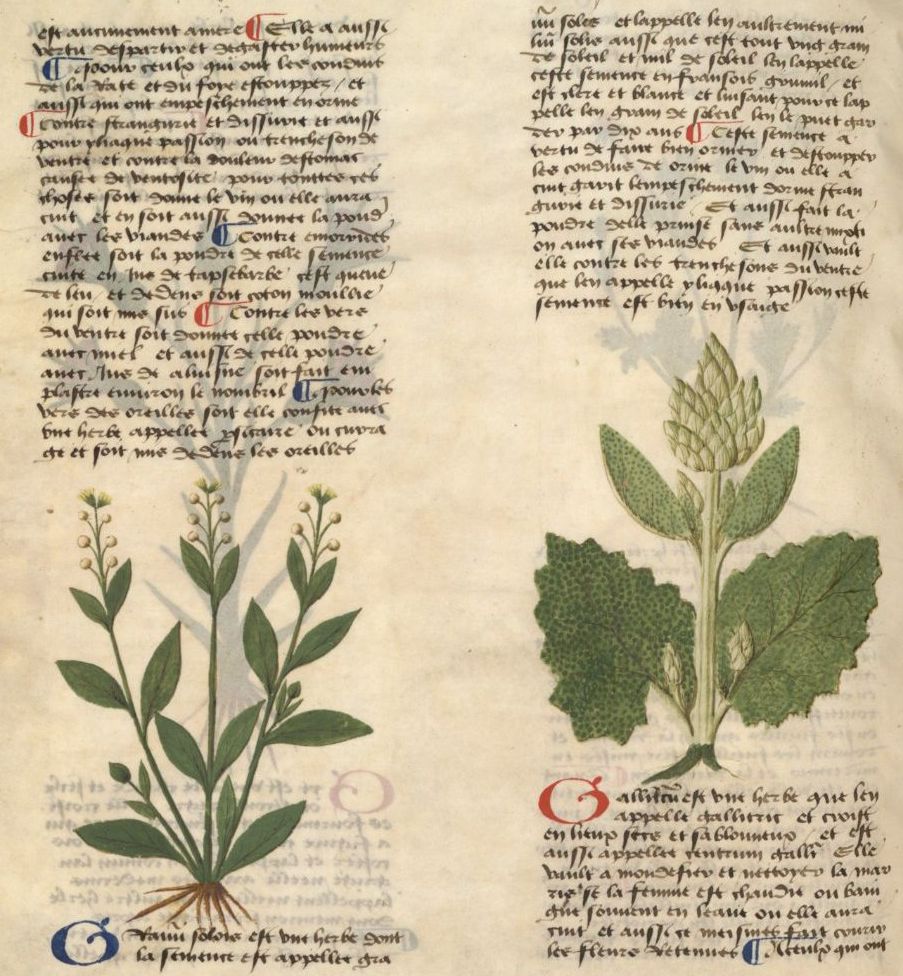 est aucunement amere ¶ Elle a aussi
vertu despartir et degaster humeurs
¶ Pour ceulx qui ont les conduit
de la Rate et du foye estouppez / et
aussi qui ont empeschement en orine
¶ Contre strangurie et dissurie et aussi
pour yliaque passion ou trencheson de
ventre et contre la douleur destomac
causee de ventosite pour touttes ces
choses soit donne le vin ou elle aura
cuit et en soit aussi donnee la poud
avec les viandes ¶ Contre emorroides
enflee soit la pouldre de celle semence
cuite en Jus de tapsebarbe cest queue
de leu / et dedens soit coton moullie
qui soit mis sus ¶ Contre les vers
du ventre soit donnee celle pouldre
avec miel et aussi de celle pouldre
avec Jus de aluisne soit fait em
plastre environ le nombril ¶ Pour les
vers des oreilles soit elle confite avec
une herbe appellee ou
ge et soit mis dedens les oreilles
Ranum solois est une herbe dont
la semence est appellee gra
num soles et lappelle len aultrement mi
lium solis aussi que cest tout ung grain
de soleil et mil de soleil len lappelle
ceste semence en fransois gremil / et
est clere et blance et luisant pour ce lap
pelle len grain de soleil len le puet gar
der par dix ans ¶ Ceste semence a
vertu de faire bien oriner et destoupper
les conduis de orine le vin ou elle a
cuit garit lempeschement dorine stran
gurie et dissurie / Et aussi fait la
pouldre delle prinse sans aultre mixti
on avec ses viandes Et aussi vault
elle contre les trenchesons du ventre
que len appelle yliaque passion ceste
semence est bien en usaige
Gallitricum est une herbe que len
appelle gallitric et croist
en lieux secs et sablonneux / et est
aussi appellee centrum galli Elle
vault a mondefier et nettoyer la mar
ris se la femme est chaudie ou bain
gnie souvent en leaue ou elle aura
cuit et aussi ce meismes fait courir
les fleurs Retenues ¶ A ceulx qui ont